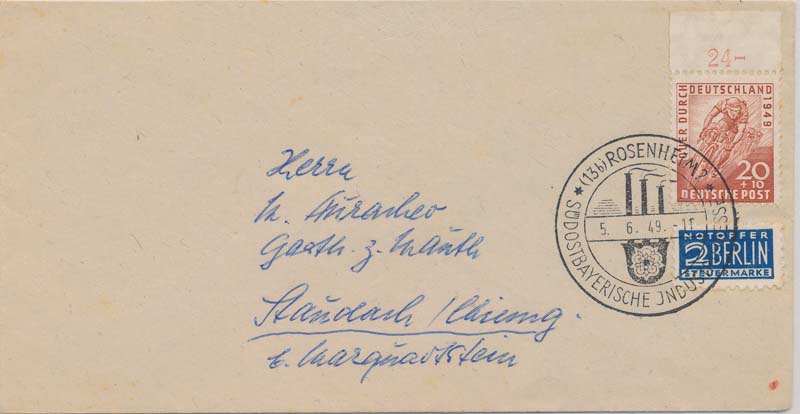 24-
QUER DURCH DEUTSCHLAND 1949
20
+10
DEUTSCHE POST
(13b) ROSENHEIM 2
5. 6. 49. -11
SÜDOSTBAYERISCHE JNDUSTRIEMESSE
NOTOPFER
2 BERLIN
STEUERMARKE
Herrn
Gasth. z. Mauth
Staudach / Chiemg.
b. Marquartstein